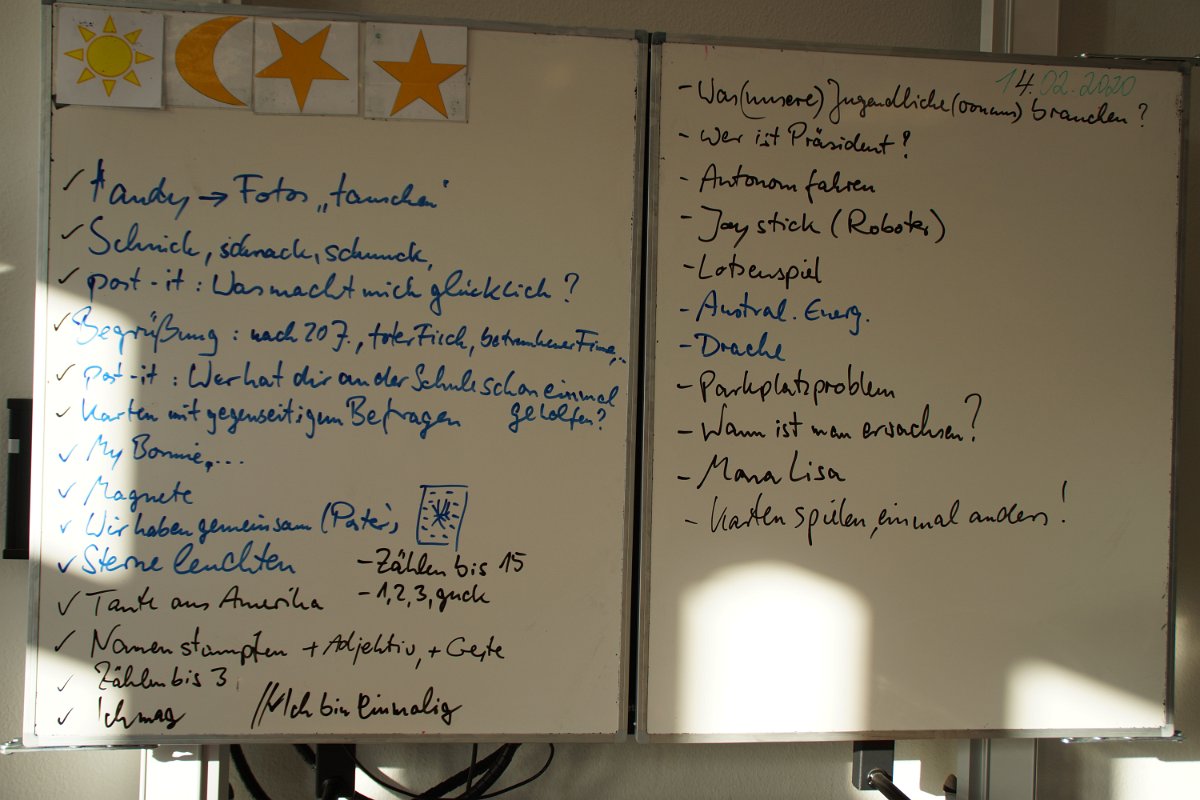 ✓ Handy → Fotos „tauschen“
✓ Schnick, schnack, schnuck,
✓ post-it: Was macht mich glücklich?
✓ Begrüßung: nach 20 J., toter Fisch, betrunkener
✓ post-it: Wer hat dir an der Schule schon einmal
geholfen?
✓ Karten mit gegenseitigem Befragen
✓ My Bonnie,...
✓ Magnete
✓ Wir haben gemeinsam (Poster)
✓ Sterne leuchten
- Zählen bis 15
- 1, 2, 3, guck
✓ Tante aus Amerika
✓ Namen stampfen + Adjektiv, + Geste
✓ Zählen bis 3
✓ Ich mag
// ✓ Ich bin Einmalig
14.02.2020
- Was (unsere) Jugendliche (von uns) brauchen?
- Wer ist Präsident?
- Autonom fahren
- Joystick (Roboter)
- Lotsenspiel
- Austral. Energ.
- Drache
- Parkplatzproblem
- Wann ist man erwachsen?
- Mona Lisa
- Karten spielen, einmal anders!